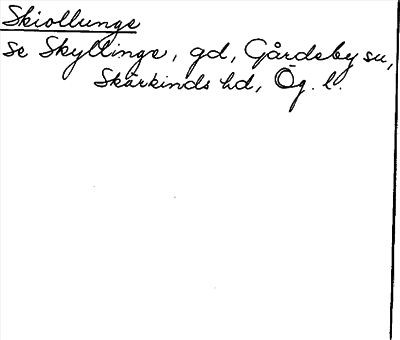 Skiollunge
se Skyllinge, gd, Gårdeby sn,
Skärkinds hd, Ög. l.